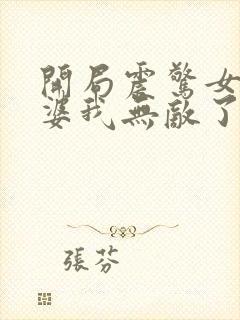 開局震驚女
婆我無敵了
張芬